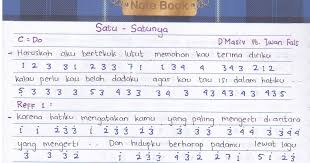 Note Book
Satu - Satunya
C = Do D'Masiv ft. Iwan Fals
- Haruskah aku bertekuk lutut memohon kau terima diriku
1 2 3 3 1 2 3 3 7 1 1 3 4 4 3 4 3 2 1 2
kalau perlu kau belah dadaku agar kau tau isi dalam hatiku ..
5 3 3 3 3 5 3 4 3 3 3 4 5 3 4 3 3 2 3 3
Reff 1 :
- Karena hatiku mengatakan kamu yang paling mengerti diantara
1 1 2 3 3 1 2 3 3 2 3 3 3 2 1 1 2 3 3
yang mengerti .... Dan hidupku berharap padamu lewat lagu
3 3 3 2 1 1 2 3 3 1 2 3 3 2 3 3